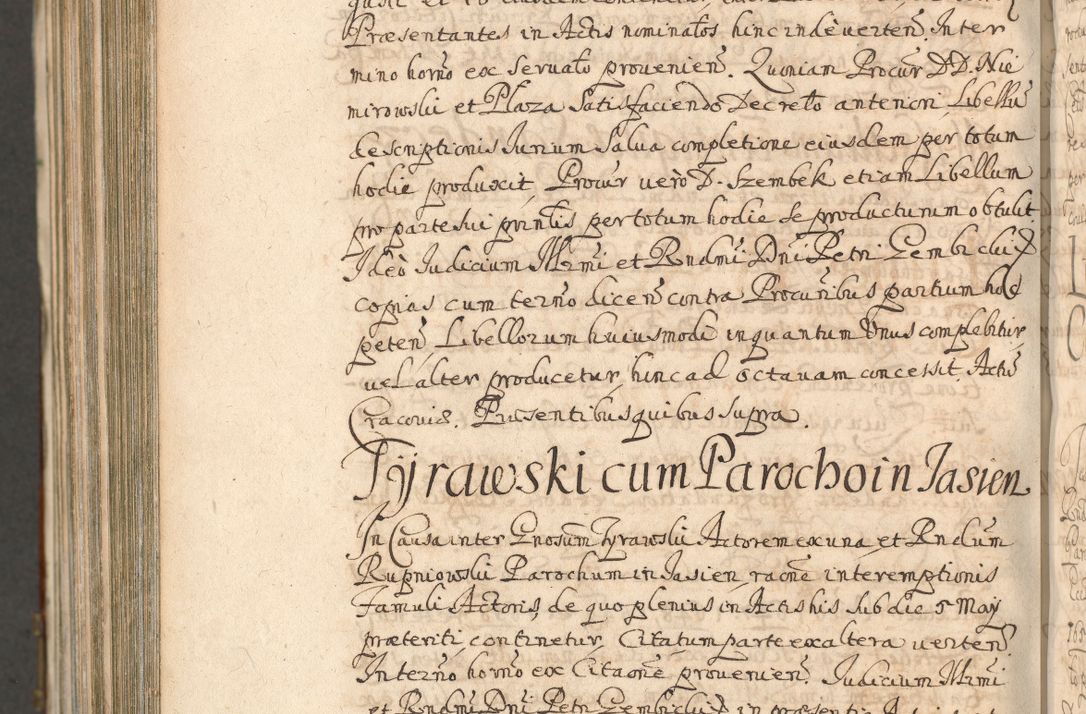 Præsentantes in Actis nominatos hinc inde verten. In ter
mino horno ex Servato provenien. Quoniam Procur DD. Nie
mirowski et Plaza Satisfaciendo Decreto anteriori Libellu
descriptionis Iurium Salva completione eiusdem per totum
hodie produxit, Procur vero D. Szembek etiam Libellum
pro parte sui prin̄tlis per totum hodie se producturum obtulit
Ideò Iudicium Illrmi et Rndmi Dni Petri Gembicki
copias cum termo dicen contra Procuribus partium hoc
peten Libellorum huiusmodi inquantum Unus complebitur
vel alter producetur, hinc ad octavam concessit. Actu
Cracoviæ. Præsentibus quibus supra.
Tyrawski cum Parocho in Jasien
In Causa inter Gnosum Tyrawski Actorem ex una et Rndum
Rupniowski Parochum in Jasien raone interemptionis
Famuli Actoris, de quo plenius in Actis his sub die 5 Maÿ
præteriti continetur, Citatum parte ex altera verten
In termo horno ex Citaone provenien. Iudicium Illrmi
et Rndmi Dni Petri Gembicki in præsentia